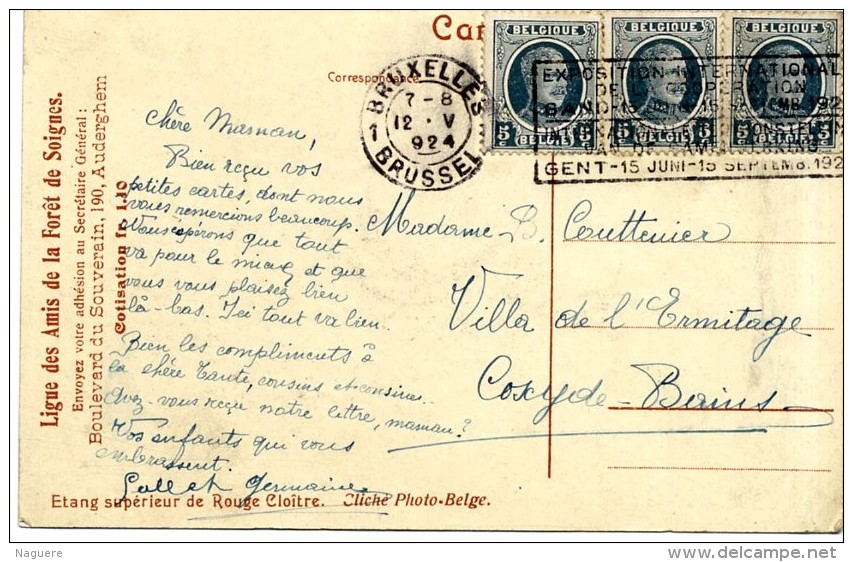 Car
Correspondance
BELGIQUE
BELGIQUE
BELGIQUE
5 5
5 5
5 5
BRUXELLES
7-8
12 · V
924
1 BRUSSEL
EXPOSITION INTERNATIONAL
DE LA COOPERATION
GAND-15 JUIN-15 SEPTEMB. 192
GENT-15 JUNI-15 SEPTEMB. 192
Ligue des Amis de la Forêt de Soignes.
Envoyez votre adhésion au Secrétaire Général :
Boulevard du Souverain, 190, Auderghem
Cotisation fr. 1.10
Chère Maman,
Bien reçu vos
petites cartes, dont nous
vous remercions beaucoup.
Nous espérons que tout
va pour le mieux et que
vous vous plaisez bien
là-bas. Ici tout va bien.
Bien les compliments à
la chère Tante, cousins et cousines.
Avez-vous reçu notre lettre, maman?
Vos enfants qui vous
embrassent.
et Germaine
Madame B. Couttenier
Villa de l'Ermitage
Coxyde-Bains
Etang supérieur de Rouge Cloître. Cliché Photo-Belge.
Naguere
delcampe.net